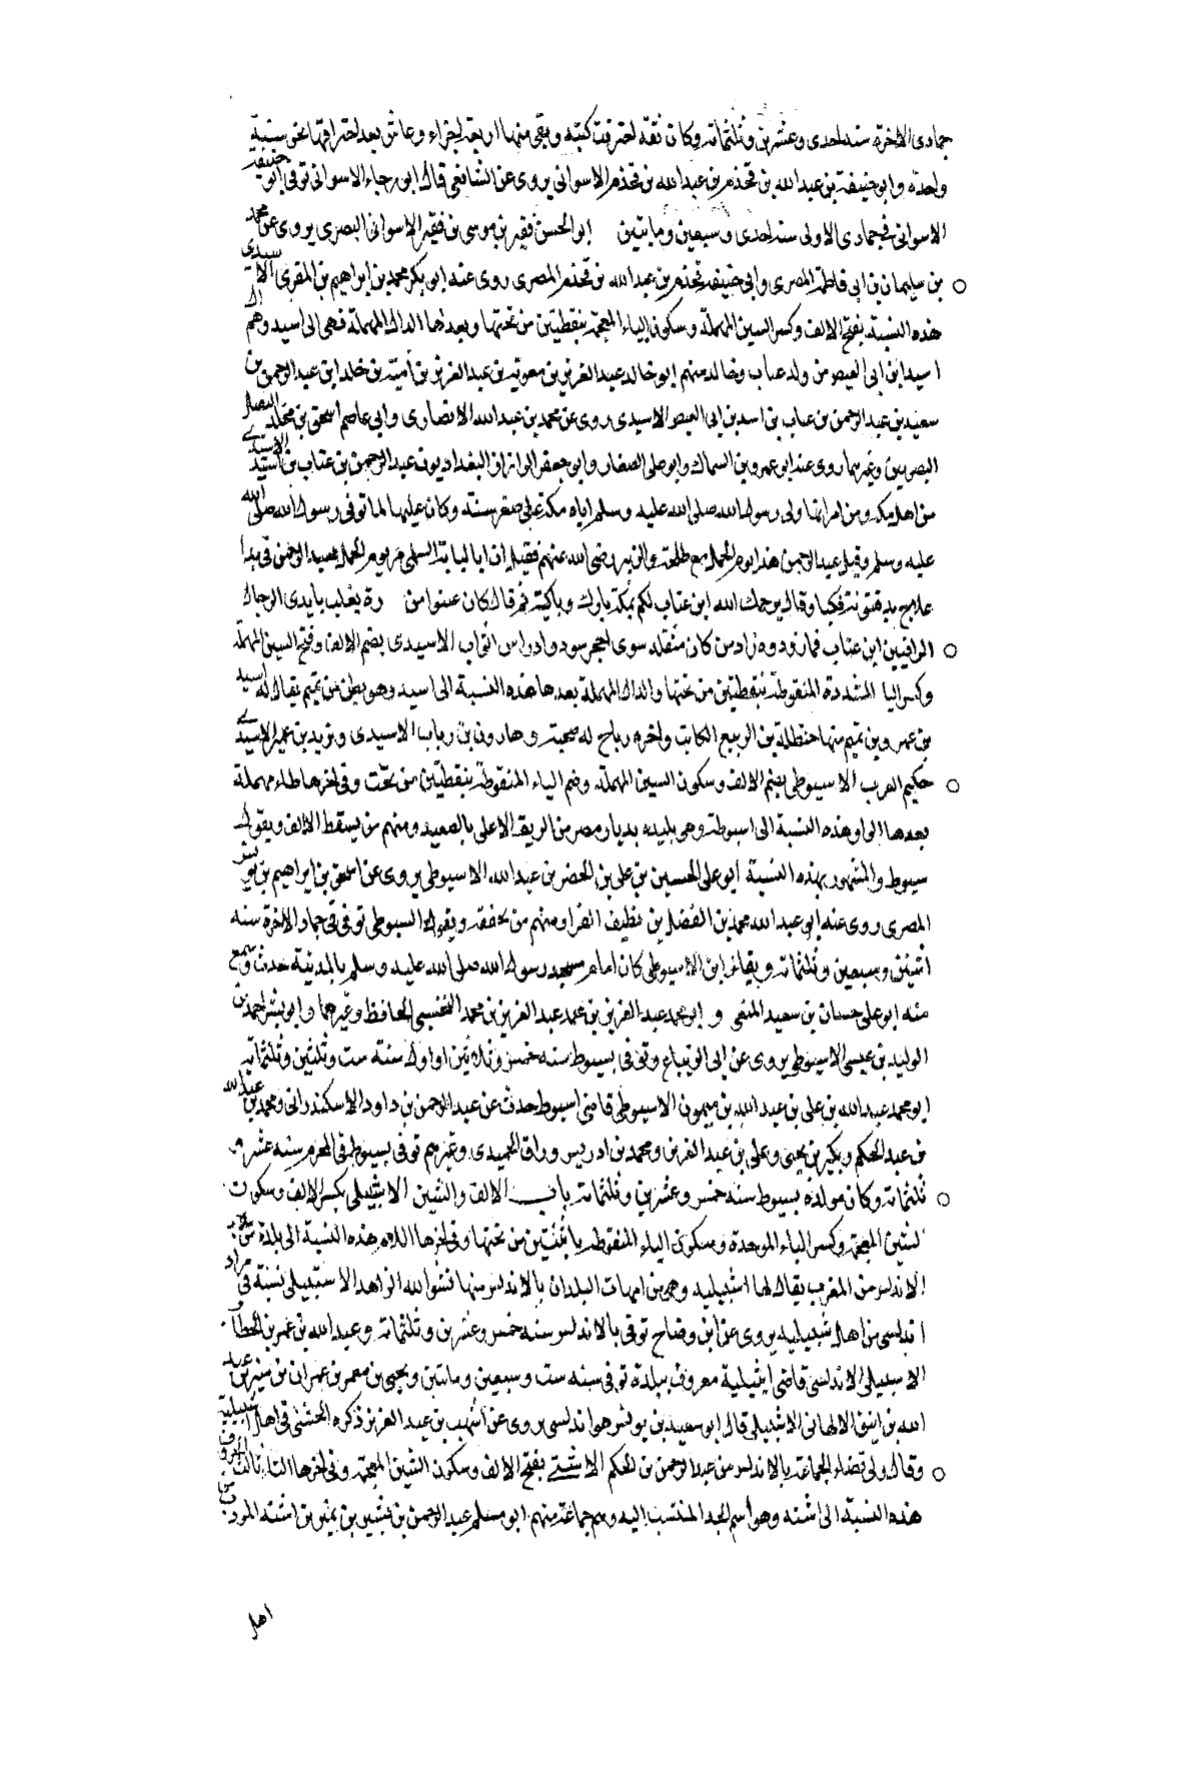 جمادى الاخرة سنة احدى وعشرين وثلثمائة وكان ثقة احترقت كتبه وبقى منها اربعة اجزاء وعاش بعد احتراقها نحو سنة
واحدة وابو حنيفة بن عبد الله بن قحذم بن عبد الله بن قحذم الاسوانى يروى عن الشافعى قال ابو رجاء الاسوانى توفى ابو حنيفة
الاسوانى فى جمادى الاولى سنة احدى وسبعين ومايتين ابو الحسن فقير بن موسى بن فقير الاسوانى البصرى يروى عن محمد
بن سليمان بن ابى فاطمة المصرى وابى حنيفة قحذم بن عبد الله بن قحذم المصرى روى عنه ابو بكر محمد بن ابراهيم بن المقرى الاسيدى
هذه النسبة بفتح الالف وكسر السين المهملة وسكون الياء المعجمة بنقطتين من تحتها وبعدها الدال المهملة فهى الى اسيد وهم ال
اسيد ابن ابى العيص من ولد عتاب وخالد منهم ابو خالد عبد العزيز بن معوية بن عبد العزيز بن امية بن خلد ابن عبد الرحمن بن
سعيد بن عبد الرحمن بن عتاب بن اسد بن ابى العيص الاسيدى روى عن محمد بن عبد الله الانصارى وابى عاصم اسحق بن مخلد
البصريين وغيرهما روى عنه ابو عمرو بن السماك وابو على الصفار وابو جعفر الرازاز البغداديون عبد الرحمن بن عتاب بن اسيد الاسيدى
من اهل مكة ومن امرائها ولى رسول الله صلى الله عليه وسلم اياه مكة على صغر سنه وكان عليها لما توفى رسول الله صلى الله
عليه وسلم وقتل عبد الرحمن هذا يوم الجمل مع طلحة والزبير رضى الله عنهم فقيل ان ابا لبابة السلمى مر يوم الجمل بعبد الرحمن فى بدا
قال يرحمك الله ابن عتاب لكم بمكة باك وباكية ثم قال كان بايدى الرجال
المراقيين ابن عتاب فما زودوه زاد من كان متقله سوى احجر سود وادراس اثواب الاسيدى بضم الالف وفتح السين المهملة
وكسر اليا المشددة المنقوطة بنقطتين من تحتها والدال المهملة بعدها هذه النسبة الى اسيد وهو بطن من تميم يقال له اسيد
بن عمرو بن تميم منها حنظلة بن الربيع الكاتب واخوه رباح له صحبة وهارون بن رياب الاسيدى ويزيد بن عمير الاسيدى
حكيم العرب الاسيوطى بضم الالف وسكون السين المهملة وضم الياء المنقوطة بنقطتين من تحت وفى اخرها طاء مهملة
بعدها الواو هذه النسبة الى اسيوط وهى بليدة بديار مصر من الريف الاعلى بالصعيد ومنهم من يسقط الالف ويقول
سيوط والمشهور بهذه النسبة ابو على الحسين بن على بن الخضر بن عبد الله الاسيوطى يروى عن اسحق بن ابراهيم بن يونس
المصرى روى عنه ابو عبد الله محمد بن الفضل بن نظيف الفرا ومنهم من يخففه ويقول السيوطى توفى فى جماد الاخرة سنة
اثنين وسبعين وثلثمائة ويقال ابن الاسيوطى كان امام مسجد رسول الله صلى الله عليه وسلم بالمدينة حدث وسمع
منه ابو على حسان بن سعيد المنفى و ابو محمد عبد العزيز بن محمد عبد العزيز بن محمد النخشبى الحافظ وغيرهما وابو بشر احمد بن
الوليد بن عيسى الاسيوطى يروى عن ابى الزنباع وتوفى بسيوط سنة خمس وثلاثين او اول سنة ست وثلثين وثلثمائة
ابو محمد عبد الله بن على بن عبد الله بن ميمون الاسيوطى قاضى اسيوط حدث عن عبد الرحمن بن داود الاسكندرانى ومحمد بن عبد الله
بن عبد الحكم وبكير بن يحيى وعلى بن عبد العزيز ومحمد بن ادريس وراق الحميدى وغيرهم توفى بسيوط فى المحرم سنة عشر و
ثلثمائة وكان مولده بسيوط سنة خمس وعشرين وثلثمائة باب الالف والشين الاشبيلى بكسر الالف وسكون
الشين المعجمة وكسر الباء الموحدة وسكون الياء المنقوطة باثنتين من تحتها وفى اخرها اللام هذه النسبة الى بلدة من بلاد
الاندلس من المغرب يقال لها اشبيلية وهى من امهات البلدان بالاندلس منها الله الزاهد الاشبيلى نسبة فى مراد
اندلسى من اهل اشبيلية يروى عن ابن وضاح توفى بالاندلس سنة خمس وعشرين وثلثمائة وعبد الله بن عمر بن الخطاب
الاشبيلى الاندلسى قاضى اشبيلية معروف ببلدة توفى سنة ست وسبعين ومائتين ويحيى بن معمر بن عمران بن منير بن عبيد
الله بن انيق الالهانى الاشبيلى قال ابو سعيد بن يونس هو اندلسى يروى عن اشهب بن عبد العزيز ذكره الخشنى فى اهل اشبيلية
وقال ولى قضاء الجماعة بالاندلس من عبد الرحمن بن الحكم الاشتى بفتح الالف وسكون الشين المعجمة وفى اخرها التا ثالث الحروف
هذه النسبة الى اشته وهو اسم لجد المنتسب اليه وهم جماعة منهم ابو مسلم عبد الرحمن بن بشير بن نمير بن اشته المودب من
اهل